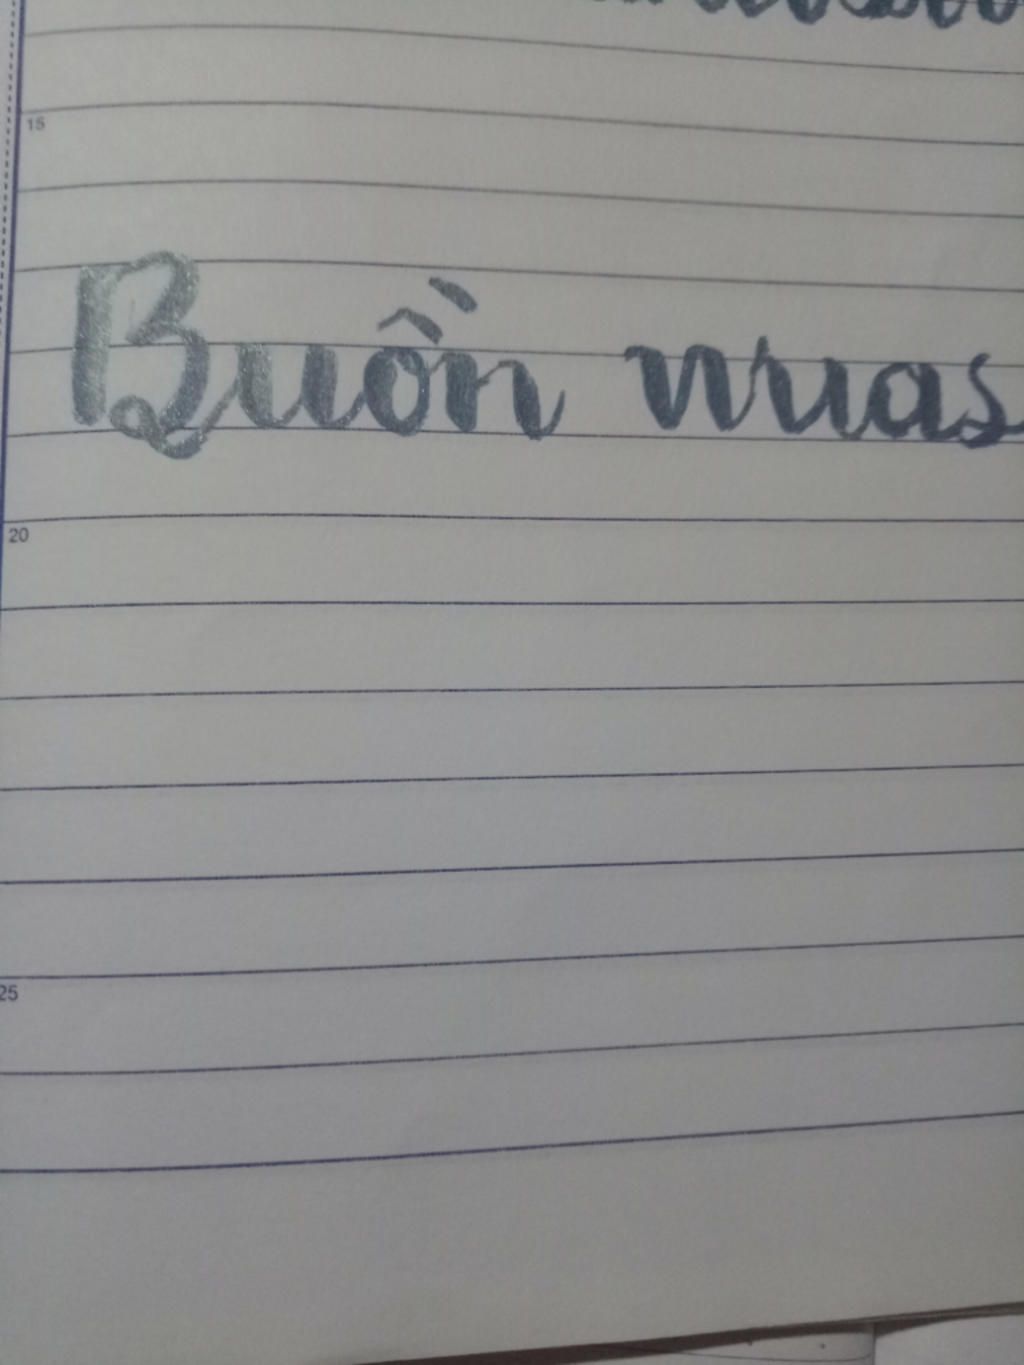 15
Buồn nruas
20
25